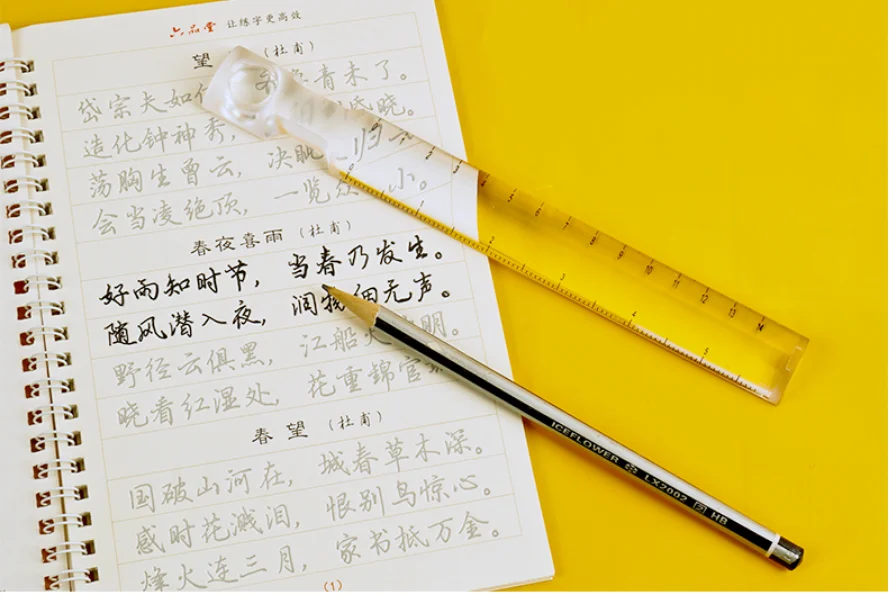 六品堂 让练字更高效
望 （杜甫）
岱宗夫如 青未了。
造化钟神秀， 昏晓。
荡胸生曾云， 决眦 归
会当凌绝顶， 一览众 小。
春夜喜雨（杜甫）
好雨知时节， 当春乃发生。
随风潜入夜， 润 细无声。
野径云俱黑， 江船火 明。
晓看红湿处， 花重锦官
春望（杜甫）
国破山河在， 城春草木深。
感时花溅泪， 恨别鸟惊心。
烽火连三月， 家书抵万金。
（1）
0 1 2 3 4 5 6 7 8 9 10 11 12 13 14
1 2 3 4 5
ICEFLOWER LX2002 HB